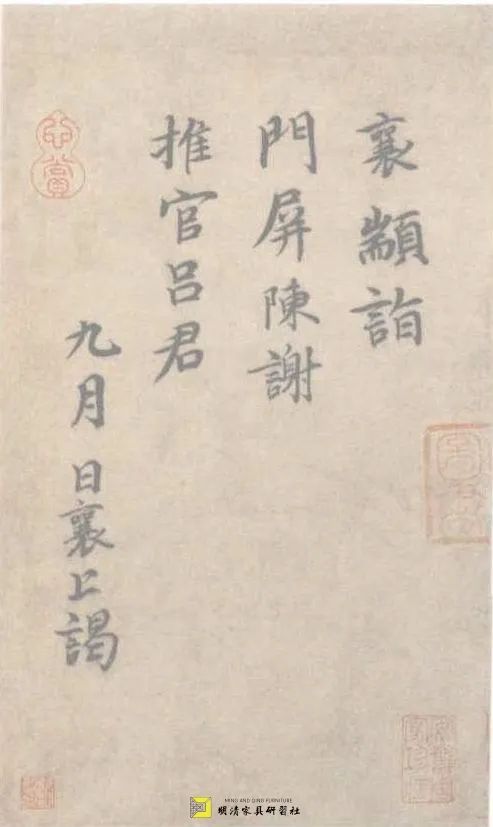 襄顓詣
門屏陳謝
推官呂君
九月 日襄上謁
MING AND QING FURNITURE
明清家具研習社